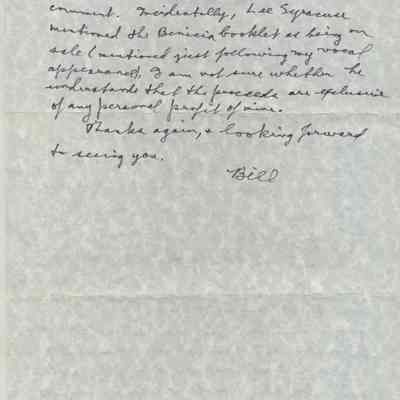 comment. Incidentally, Lee Syracuse
mentioned the Benicia booklet as being on
sale (mentioned just following my vocal
appearance). I am not sure whether he
understands that the proceeds are exclusive
of any personal profit of mine.
Thanks again, & looking forward
to seeing you.
Bill